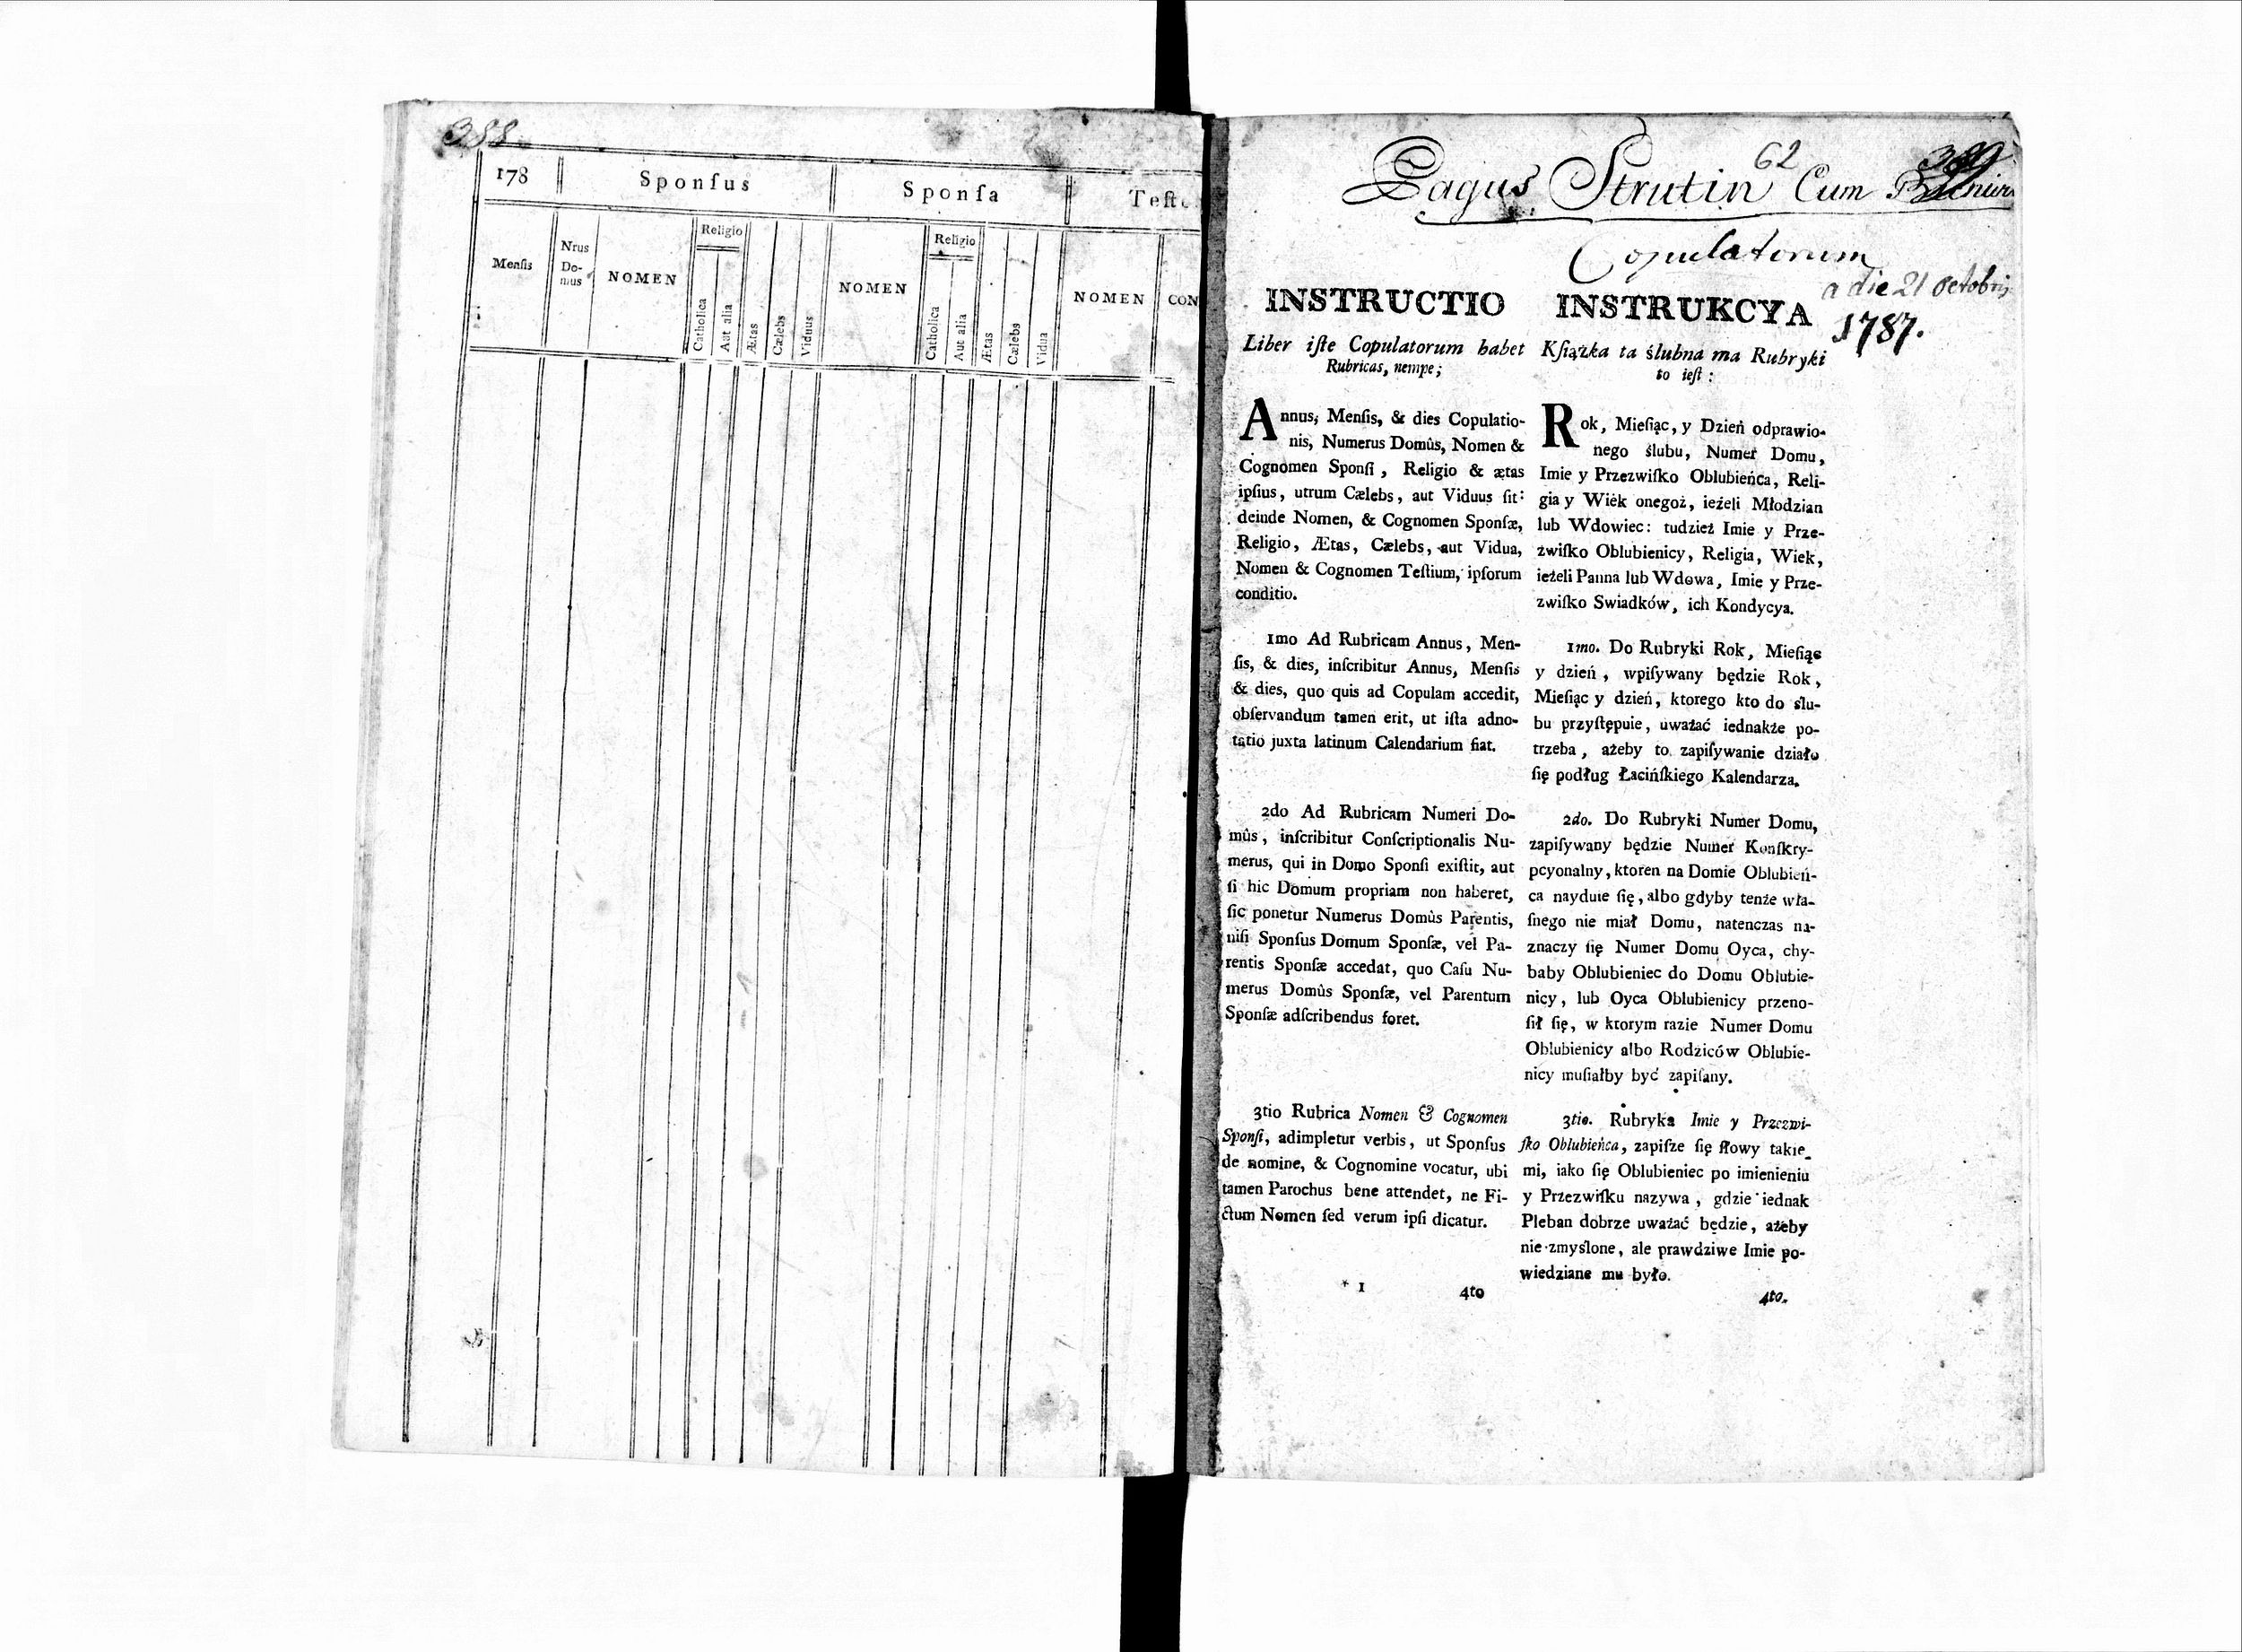 388
178
Sponſus
Sponſa
Mensis
Nrus Do-mus
NOMEN
Religio
Catholica
Aut alia
Ætas
Cælebs
Viduus
NOMEN
Religio
Catholica
Aut alia
Ætas
Cælebs
Vidua
NOMEN
CON
62
Pagus Strutin Cum
Copulatorum
a die 21 Octobris
1787.
INSTRUCTIO
Liber iſte Copulatorum habet
Rubricas, nempe;
Annus, Menſis, & dies Copulatio-
nis, Numerus Domûs, Nomen &
Cognomen Sponſi, Religio & ætas
ipſius, utrum Cælebs, aut Viduus ſit:
deinde Nomen, & Cognomen Sponſæ,
Religio, Ætas, Cælebs, aut Vidua,
Nomen & Cognomen Teſtium, ipſorum
conditio.
1mo Ad Rubricam Annus, Men-
ſis, & dies, inſcribitur Annus, Menſis
& dies, quo quis ad Copulam accedit,
obſervandum tamen erit, ut iſta adno-
tatio juxta latinum Calendarium fiat.
2do Ad Rubricam Numeri Do-
mûs, inſcribitur Conſcriptionalis Nu-
merus, qui in Domo Sponſi exiſtit, aut
ſi hic Domum propriam non haberet,
ſic ponetur Numerus Domûs Parentis,
niſi Sponſus Domum Sponſæ, vel Pa-
rentis Sponſæ accedat, quo Caſu Nu-
merus Domûs Sponſæ, vel Parentum
Sponſæ adſcribendus foret.
3tio Rubrica Nomen & Cognomen
Sponſi, adimpletur verbis, ut Sponſus
de nomine, & Cognomine vocatur, ubi
tamen Parochus bene attendet, ne Fi-
ctum Nomen ſed verum ipſi dicatur.
* 1
4to
INSTRUKCYA
Kſiążka ta ślubna ma Rubryki
to ieſt:
Rok, Mieſiąc, y Dzień odprawio-
nego ślubu, Numer Domu,
Imie y Przezwiſko Oblubieńca, Reli-
gia y Wiek onegoż, ieżeli Młodzian
lub Wdowiec: tudzież Imie y Prze-
zwiſko Oblubienicy, Religia, Wiek,
ieżeli Panna lub Wdowa, Imie y Prze-
zwiſko Swiadków, ich Kondycya.
1mo. Do Rubryki Rok, Mieſiąc
y dzień, wpiſywany będzie Rok,
Mieſiąc y dzień, ktorego kto do ślu-
bu przyſtępuie, uważać iednakże po-
trzeba, ażeby to zapiſywanie działo
ſię podług Łacińſkiego Kalendarza.
2do. Do Rubryki Numer Domu,
zapiſywany będzie Numer Konſkry-
pcyonalny, ktoren na Domie Oblubień-
ca nayduie ſię, albo gdyby tenże wła-
ſnego nie miał Domu, natenczas na-
znaczy ſię Numer Domu Oyca, chy-
baby Oblubieniec do Domu Oblubie-
nicy, lub Oyca Oblubienicy przeno-
ſił ſię, w ktorym razie Numer Domu
Oblubienicy albo Rodziców Oblubie-
nicy muſiałby być zapiſany.
3tio. Rubryka Imie y Przezwi-
ſko Oblubieńca, zapiſze ſię ſłowy takie-
mi, iako ſię Oblubieniec po imienieniu
y Przezwiſku nazywa, gdzie iednak
Pleban dobrze uważać będzie, ażeby
nie zmyślone, ale prawdziwe Imie po-
wiedziane mu było.
4to.